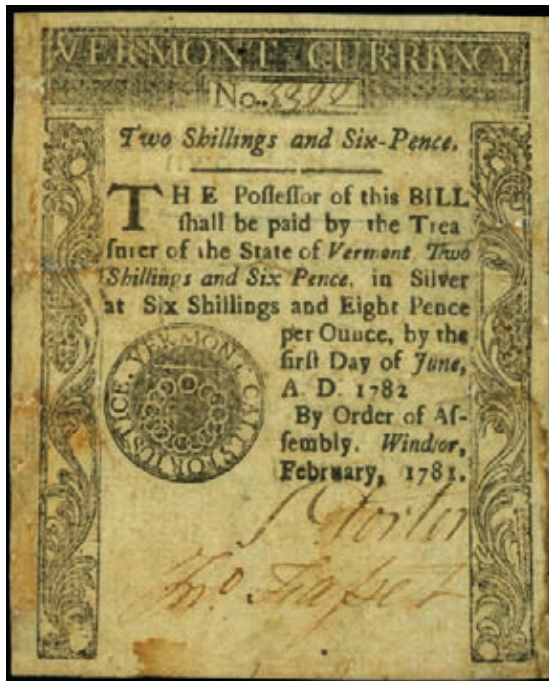 VERMONT CURRANCY
No. 3399
Two Shillings and Six-Pence.
THE Poſſeſſor of this BILL
ſhall be paid by the Trea
ſurer of the State of Vermont Two
Shillings and Six Pence, in Silver
at Six Shillings and Eight Pence
per Ounce, by the
firſt Day of June,
A. D. 1782
By Order of Aſ-
ſembly. Windſor,
February, 1781.
VERMONT CALLS FOR JUSTICE.
Porter
Jno Faſset